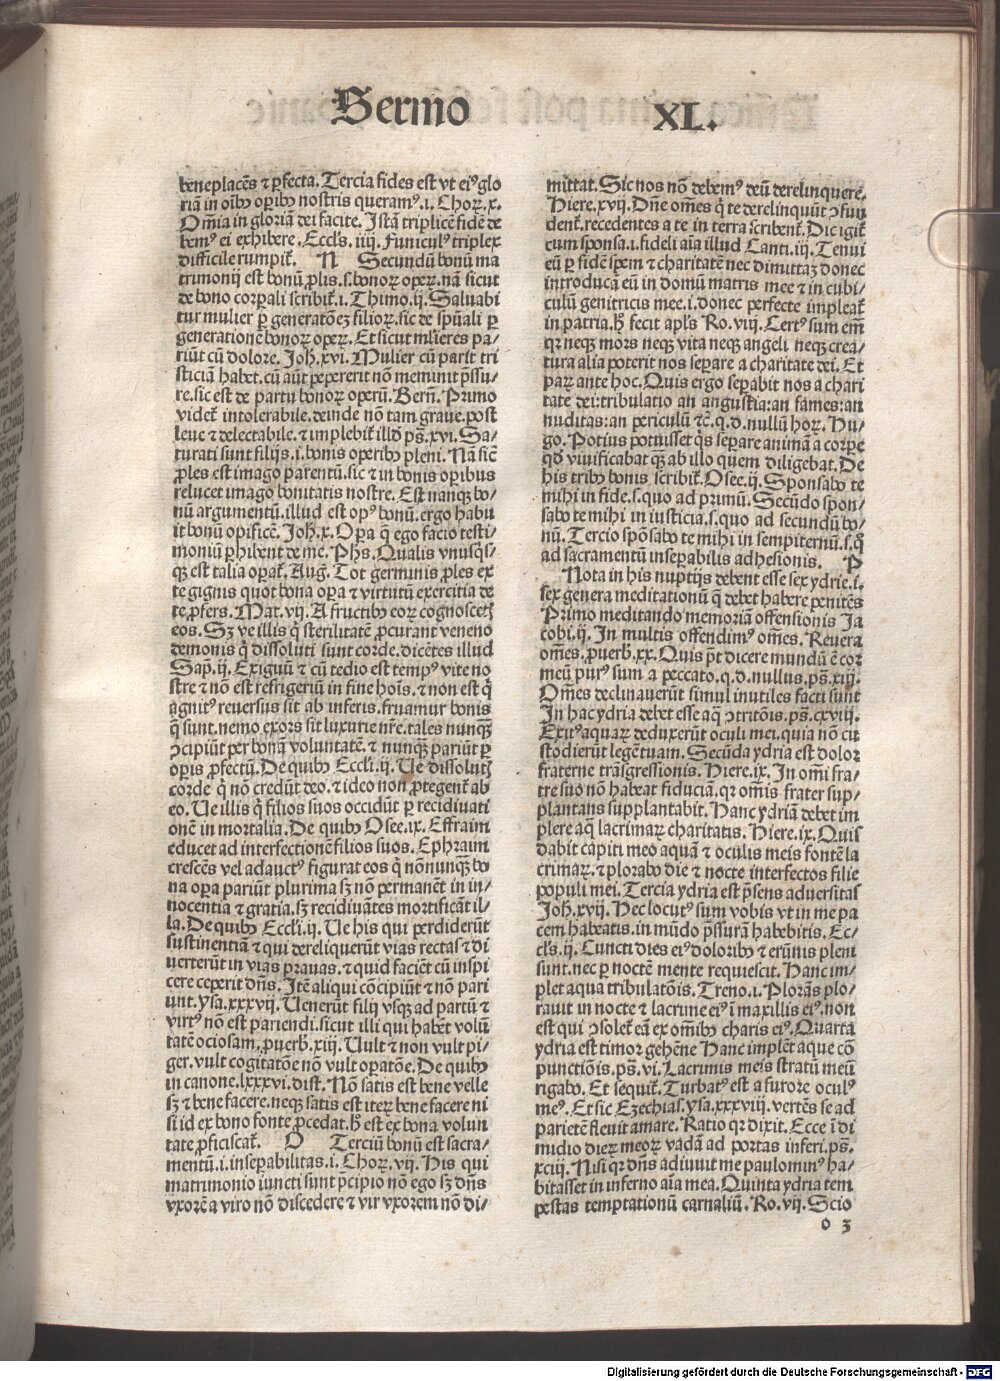 Sermo XL.
beneplacēs ⁊ ꝑfecta. Tercia fides est vt ei⁹ glo
riā in oīb⁹ opib⁹ nostris queram⁹ .i. Choꝝ. x.
Oīa in gloriā dei facite. Istā triplicē fidē de
bem⁹ ei exhibere. Eccl's. iiij. Funicul⁹ triplex
difficile rumpit̄. N Secundū bonū ma
trimonij est bonū ꝓlis .s. bonoꝝ opeꝝ. nā sicut
de bono corꝑali scribit̄ .i. Thimo. ij. Saluabi
tur mulier ꝑ generatōeꝫ filioꝝ. sic de spūali ꝑ
generationē bonoꝝ opeꝝ. Et sicut mlieres pa/
riūt cū dolore. Joh̄. xvi. Mulier cū parit tri
sticiā habet. cū aūt pepererit nō meminit p̄ssu/
re. sic est de partu bonoꝝ operū. Bern̄. Primo
videt̄ intolerabile. deinde nō tam graue. post
leue ⁊ delectabile. ⁊ implebit̄ illd̄ ps̄. xvi. Sa/
turati sunt filijs .i. bonis operib⁹ pleni. Nā sic̄
ꝓles est imago parentū. sic ⁊ in bonis opibus
relucet imago bonitatis nostre. Est nanqꝫ bo/
nū argumentū. illud est op⁹ bonū. ergo habu
it bonū opificē. Joh̄. x. Oꝑa q̄ ego facio testi/
moniū ꝑhibent de me. Ph̄s. Qualis vnusqs/
qꝫ est talia oꝑat̄. Auḡ. Tot germinis ꝓles ex
te gignis quot bona oꝑa ⁊ virtutū exercitia de
te ꝓfers. Mat. vij. A fructib⁹ eoꝝ cognoscet̄
eos. Sꝫ ve illis q̄ sterilitatē ꝓcurant veneno
demonis q̄ dissoluti sunt corde. dicētes illud
Sap̄. ij. Exiguū ⁊ cū tedio est temp⁹ vite no
stre ⁊ nō est refrigeriū in fine hoīs. ⁊ non est q̄
agnit⁹ reuersus sit ab inferis. fruamur bonis
q̄ sunt. nemo exors sit luxurie nr̄e. tales nunqꝫ
ↄcipiūt per bonā voluntatē. ⁊ nunqꝫ pariūt ꝑ
oꝑis ꝓfectū. De quib⁹ Eccli. ij. Ue dissolut̄
corde q̄ nō credūt deo. ⁊ ideo non ꝓtegent̄ ab
eo. Ue illis q̄ filios suos occidūt ꝑ recidiuati
onē in mortalia. De quib⁹ Osee. ix. Effraim
educet ad interfectionē filios suos. Ephraim
crescēs vel adauct⁹ figurat eos q̄ nōnunqꝫ bo
na oꝑa pariūt plurima sꝫ nō permanēt in in/
nocentia ⁊ gratia. sꝫ recidiuātes mortificāt il/
la. De quib⁹ Eccli. ij. Ue his qui perdiderūt
sustinentiā ⁊ qui dereliquerūt vias rectas ⁊ di
uerterūt in vias prauas. ⁊ quid faciēt cū inspi
cere ceperit dn̄s. Itē aliqui cōcipiūt ⁊ nō pari
unt. ysa. xxxvij. Uenerūt filij vsqꝫ ad partū ⁊
virt⁹ nō est pariendi. sicut illi qui habēt volū
tatē ociosam. ꝓuerb̄. xiij. Uult ⁊ non vult pi/
ger. vult cogitatōe nō vult oꝑatōe. De quib⁹
in canone. lxxxvi. dist. Nō satis est bene velle
sꝫ ⁊ bene facere. neqꝫ satis est iteꝝ bene facere ni
si id ex bono fonte ꝓcedat. h̄ est ex bona volun
tate ꝓficiscat̄. O Terciū bonū est sacra/
mentū .i. insepabilitas .i. Choꝝ. vij. His qui
matrimonio iuncti sunt p̄cipio nō ego sꝫ dn̄s
vxorē a viro nō discedere ⁊ vir vxorem nō di/
mittat. Sic nos nō debem⁹ deū derelinquere.
Hiere. xvij. Dn̄e om̄es q̄ te derelinquūt ↄfun
dent̄. recedentes a te in terra scribent̄. Dic igit̄
cum sponsa .i. fideli aīa illud Canti. iij. Tenui
eū ꝑ fidē spem ⁊ charitatē nec dimittaꝫ donec
introducā eū in domū matris mee ⁊ in cubi/
culū genitricis mee .i. donec perfecte impleat̄
in patria. h̄ fecit apl's Ro. viij. Cert⁹ sum em̄
qꝛ neqꝫ mors neqꝫ vita neqꝫ angeli neqꝫ crea/
tura alia poterit nos separe a charitate dei. Et
paꝝ ante hoc. Quis ergo sepabit nos a chari
tate dei: tribulatio an angustia: an fames: an
nuditas: an periculū ⁊c̄. q.d. nullū hoꝝ. Hu/
go. Potius potuisset q̄s separe animā a corpe
qd̄ viuificabat qꝫ ab illo quem diligebat. De
his trib⁹ bonis scribit̄. Osee. ij. Sponsabo te
mihi in fide .s. quo ad primū. Secūdo spon/
sabo te mihi in iusticia .s. quo ad secundū bo/
nū. Tercio spōsabo te mihi in sempiternū .s. q̄
ad sacramentū insepabilis adhesionis. P
Nota in his nuptijs debent esse sex ydrie .i.
sex genera meditationū q̄ debet habere penitēs
Primo meditando memoriā offensionis Ja
cobi. ij. In multis offendim⁹ om̄es. Reuera
om̄es. ꝓuerb̄. xx. Quis p̄t dicere mundū ē cor
meū pur⁹ sum a peccato. q.d. nullus. ps̄. xiij.
Om̄es declinauerūt simul inutiles facti sunt
In hac ydria debet esse aq̄ ↄtritōis. ps̄. cxviij.
Exit⁹ aquaꝝ deduxerūt oculi mei. quia nō cu
stodierūt legē tuam. Secūda ydria est dolor
fraterne trāsgressionis. Hiere. ix. In om̄i fra/
tre suo nō habeat fiduciā. qꝛ om̄is frater sup/
plantans supplantabit. Hanc ydriā debet im
plere aq̄ lacrimaꝝ charitatis. Hiere. ix. Quis
dabit capiti meo aquā ⁊ oculis meis fontē la
crimaꝝ. ⁊ plorabo die ⁊ nocte interfectos filie
populi mei. Tercia ydria est p̄sens aduersitas
Joh̄. xvij. Hec locut⁹ sum vobis vt in me pa
cem habeatis. in mūdo p̄ssurā habebitis. Ec/
cl's. ij. Cuncti dies ei⁹ dolorib⁹ ⁊ erūnis pleni
sunt. nec ꝑ noctē mente requiescit. Hanc im/
plet aqua tribulatōis. Treno. i. Plorās plo/
rauit in nocte ⁊ lacrime ei⁹ ī maxillis ei⁹. non
est qui ↄsolet̄ eā ex omib⁹ charis ei⁹. Quarta
ydria est timor gehēne Hanc implēt aque cō
punctiōis. ps̄. vi. Lacrimis meis stratū meū
rigabo. Et sequit̄. Turbat⁹ est a furore ocul⁹
me⁹. Et sic Ezechias. ysa. xxxviij. vertēs se ad
parietē fleuit amare. Ratio qꝛ dixit. Ecce ī di
midio dieꝝ meoꝝ vadā ad portas inferi. ps̄.
xciij. Nisi qꝛ dn̄s adiuuit me paulomin⁹ ha/
bitasset in inferno aīa mea. Quinta ydria tem
pestas temptationū carnaliū. Ro. vij. Scio
o 3
Digitalisierung gefördert durch die Deutsche Forschungsgemeinschaft - DFG